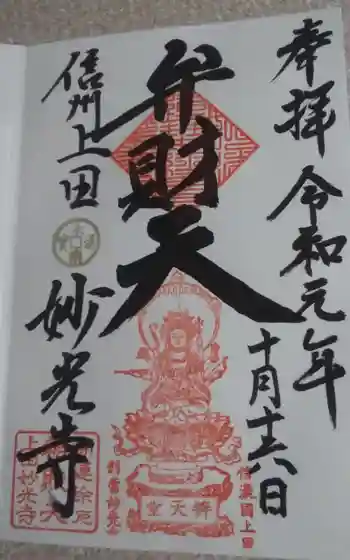 奉拝 令和元年
十月十六日
弁財天
信州上田
妙光寺
信濃國上田
辨天堂
別當妙光寺
上田妙光寺